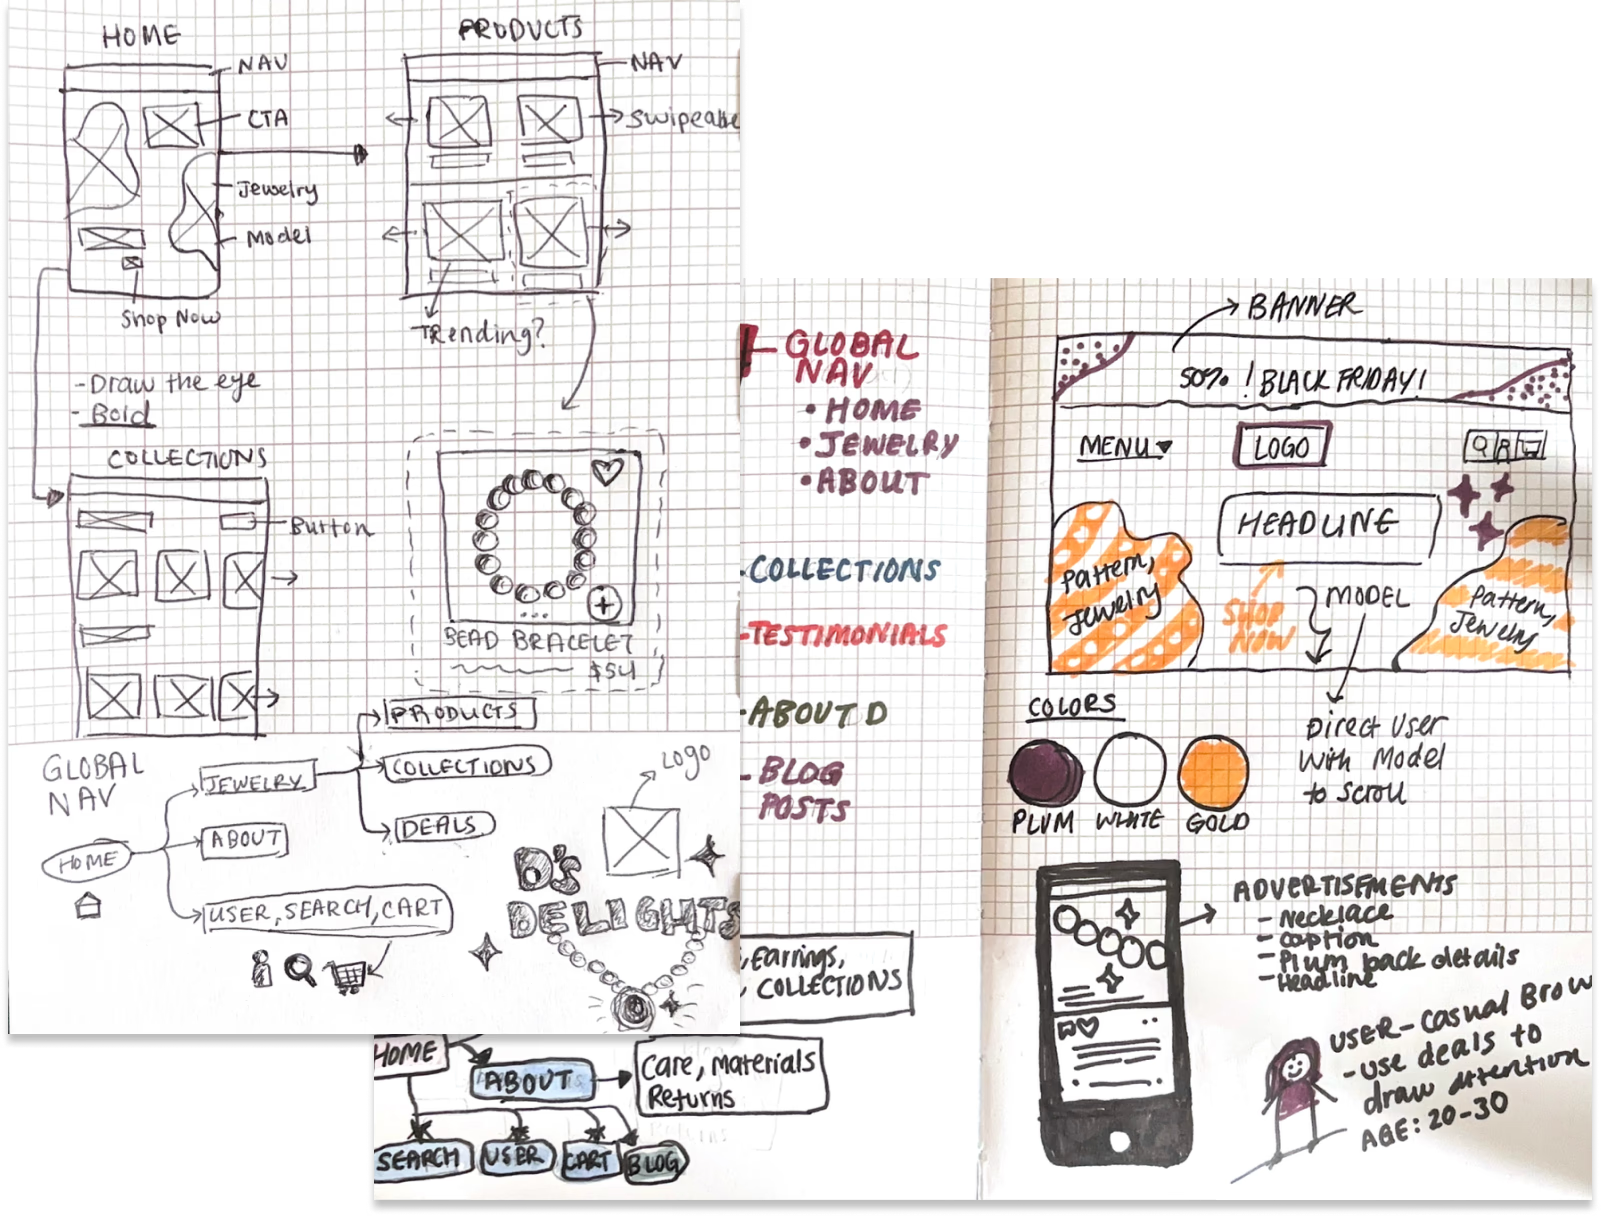 HOME
NAV
CTA
Jewelry
Model
Shop Now
PRODUCTS
NAV
Swipeable
Trending?
-Draw the eye
-Bold
COLLECTIONS
Button
BEAD BRACELET
$54
GLOBAL
NAV
HOME
JEWELRY
ABOUT
USER, SEARCH, CART
PRODUCTS
COLLECTIONS
DEALS
Logo
D's
DELIGHTS
GLOBAL
NAV
• HOME
• JEWELRY
• ABOUT
COLLECTIONS
TESTIMONIALS
ABOUT D
BLOG
POSTS
, Earrings,
, COLLECTIONS
HOME
ABOUT
Care, Materials
Returns
SEARCH
USER
CART
BLOG
BANNER
50% ! BLACK FRIDAY!
MENU
LOGO
HEADLINE
Pattern,
Jewelry
SHOP
NOW
MODEL
Pattern,
Jewelry
COLORS
PLUM
WHITE
GOLD
Direct User
with Model
to Scroll
ADVERTISEMENTS
- Necklace
- Caption
- Plum back details
- Headline
USER - Casual Brow
- Use deals to
draw attention
AGE: 20-30